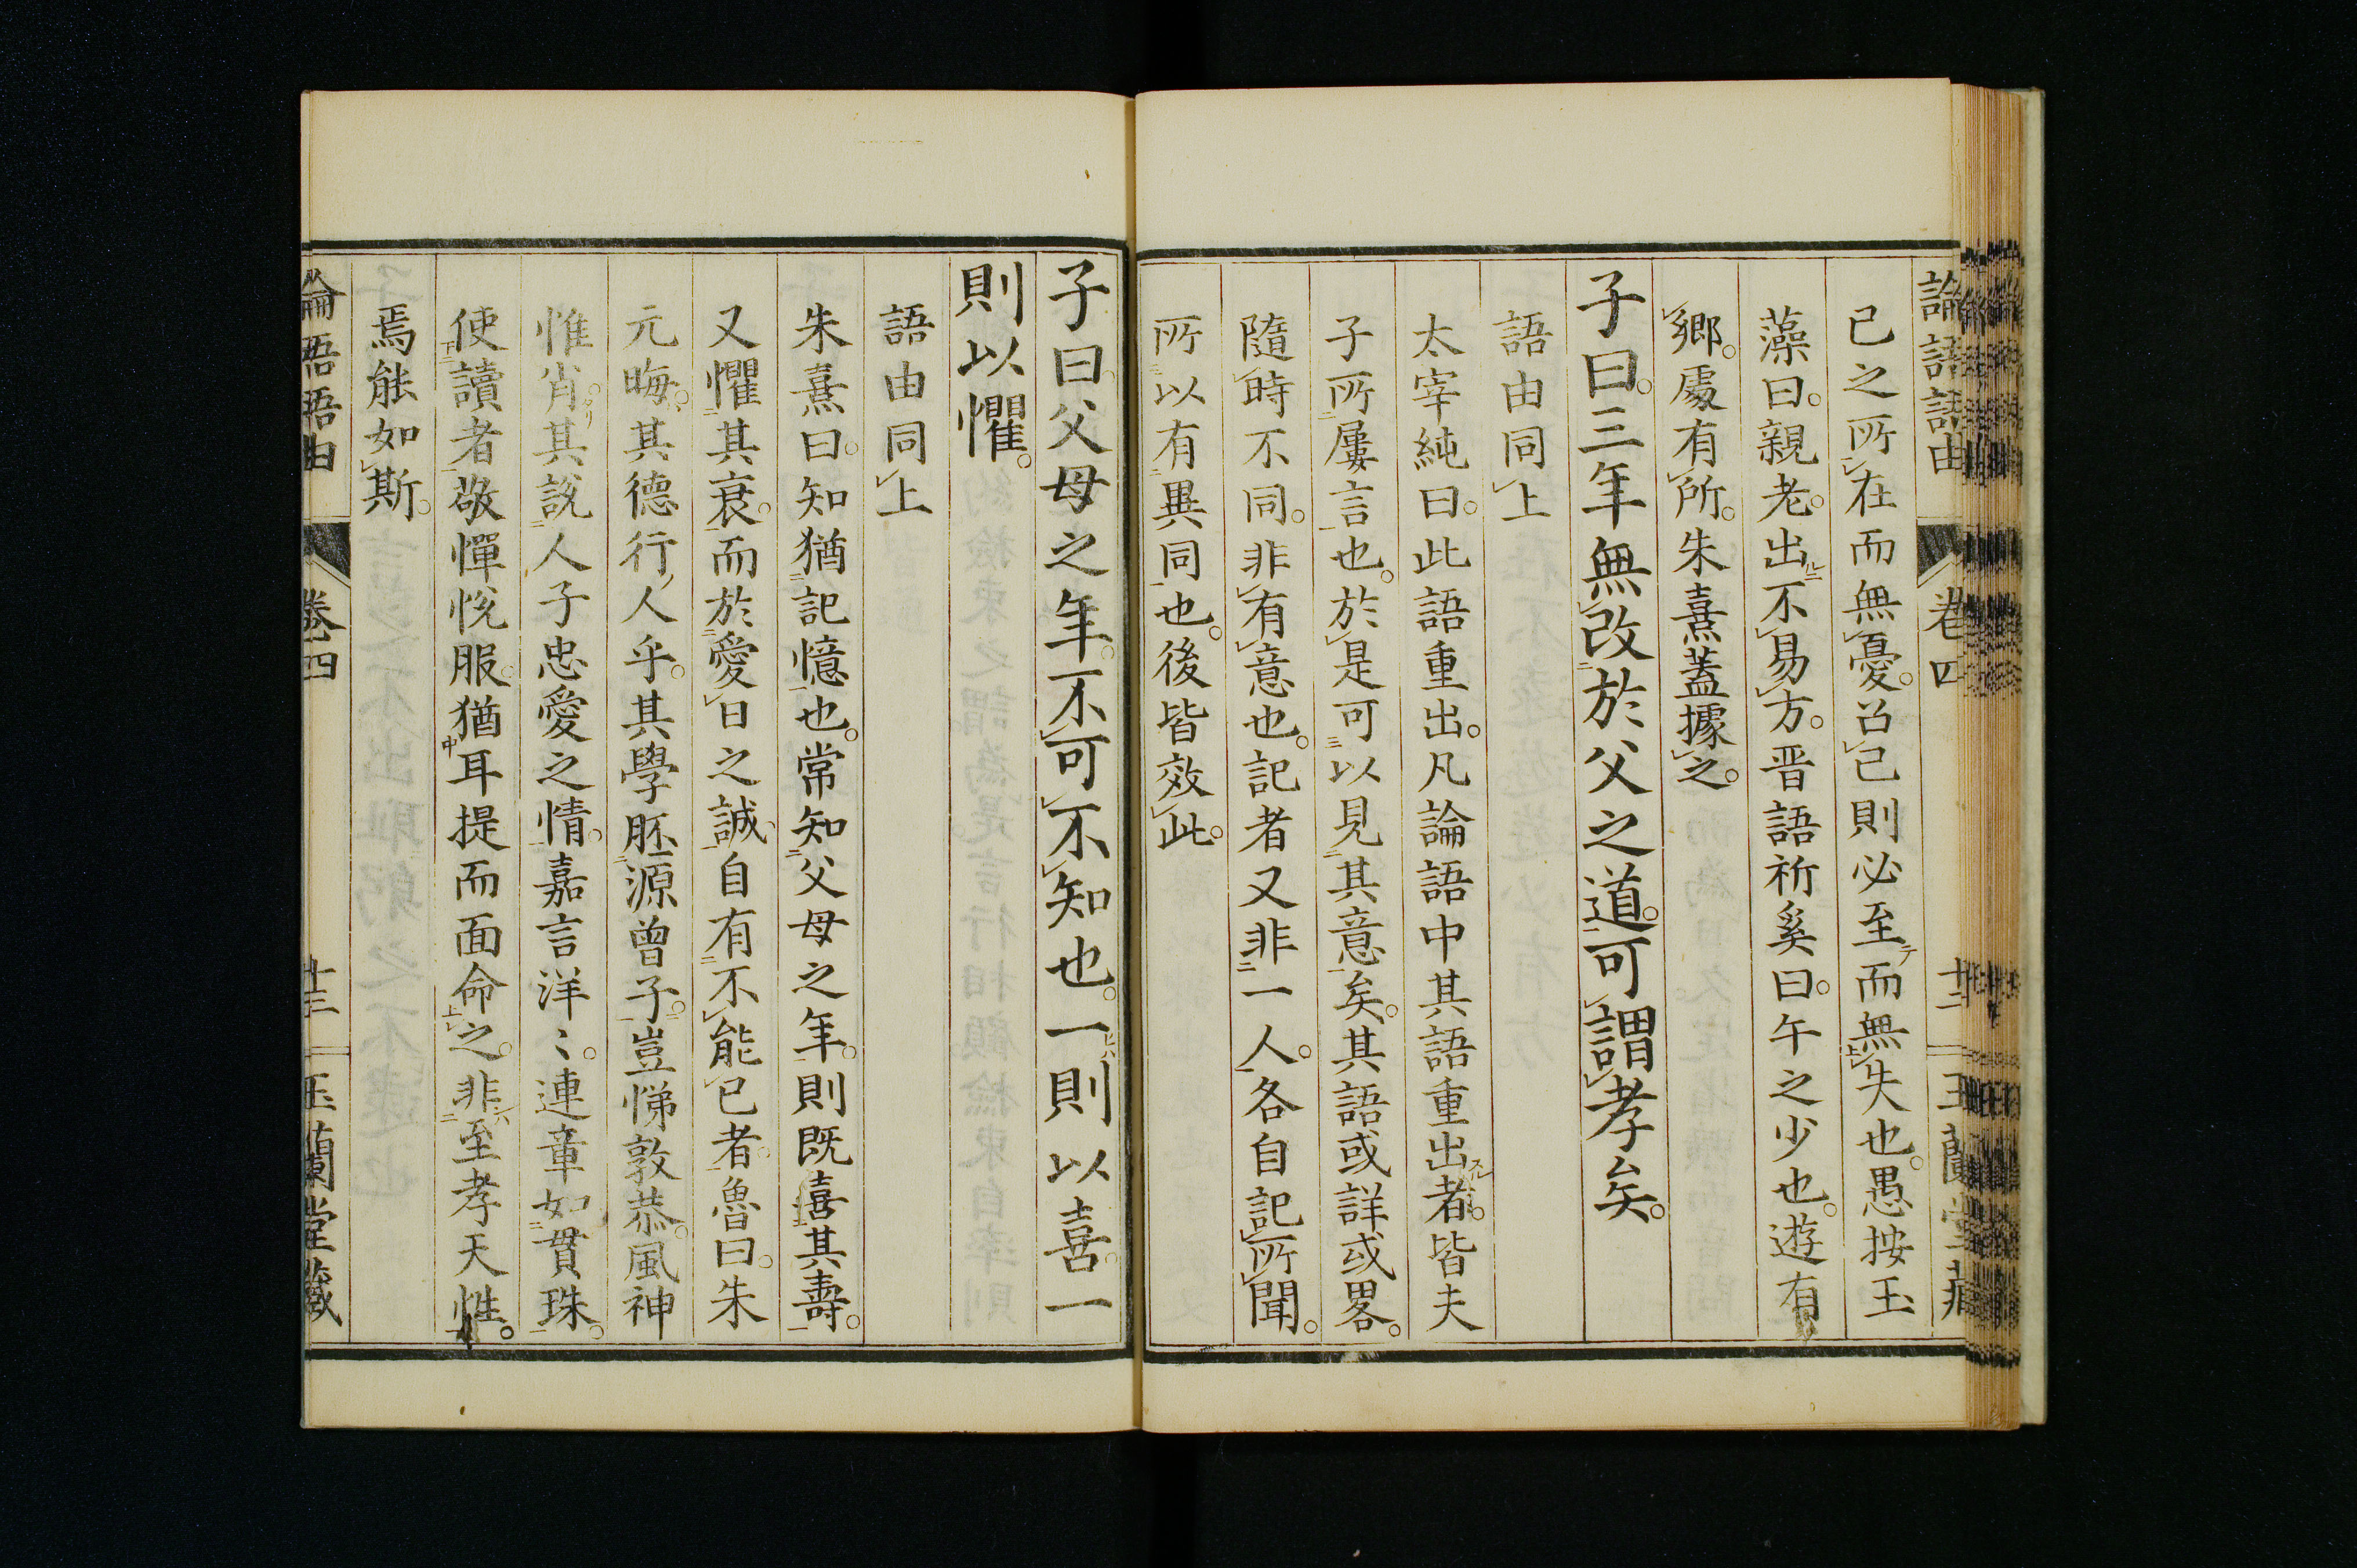 論語語由 卷四 十二 玉蘭堂藏
已之所在而無憂。召已則必至而無失也。愚按玉
藻曰。親老。出不易方。晋語祈奚曰。午之少也。遊有
鄉。處有所。朱熹蓋據之。
子曰。三年無改於父之道。可謂孝矣。
語由同上
太宰純曰。此語重出。凡論語中其語重出者。皆夫
子所屢言也。於是可以見其意矣。其語或詳或畧。
隨時不同。非有意也。記者又非一人。各自記所聞。
所以有異同也。後皆效此。
子曰。父母之年。不可不知也。一則以喜。一
則以懼。
語由同上
朱熹曰。知猶記憶也。常知父母之年。則既喜其壽。
又懼其衰。而於愛日之誠、自有不能已者。魯曰。朱
元晦、其德行人乎。其學胚源曾子。豈悌敦恭。風神
惟肖。其說人子忠愛之情、嘉言洋〻。連章如貫珠。
使讀者敬憚悅服。猶耳提而面命之。非至孝天性。
焉能如斯。
論語語由 卷四 十三 玉蘭堂藏